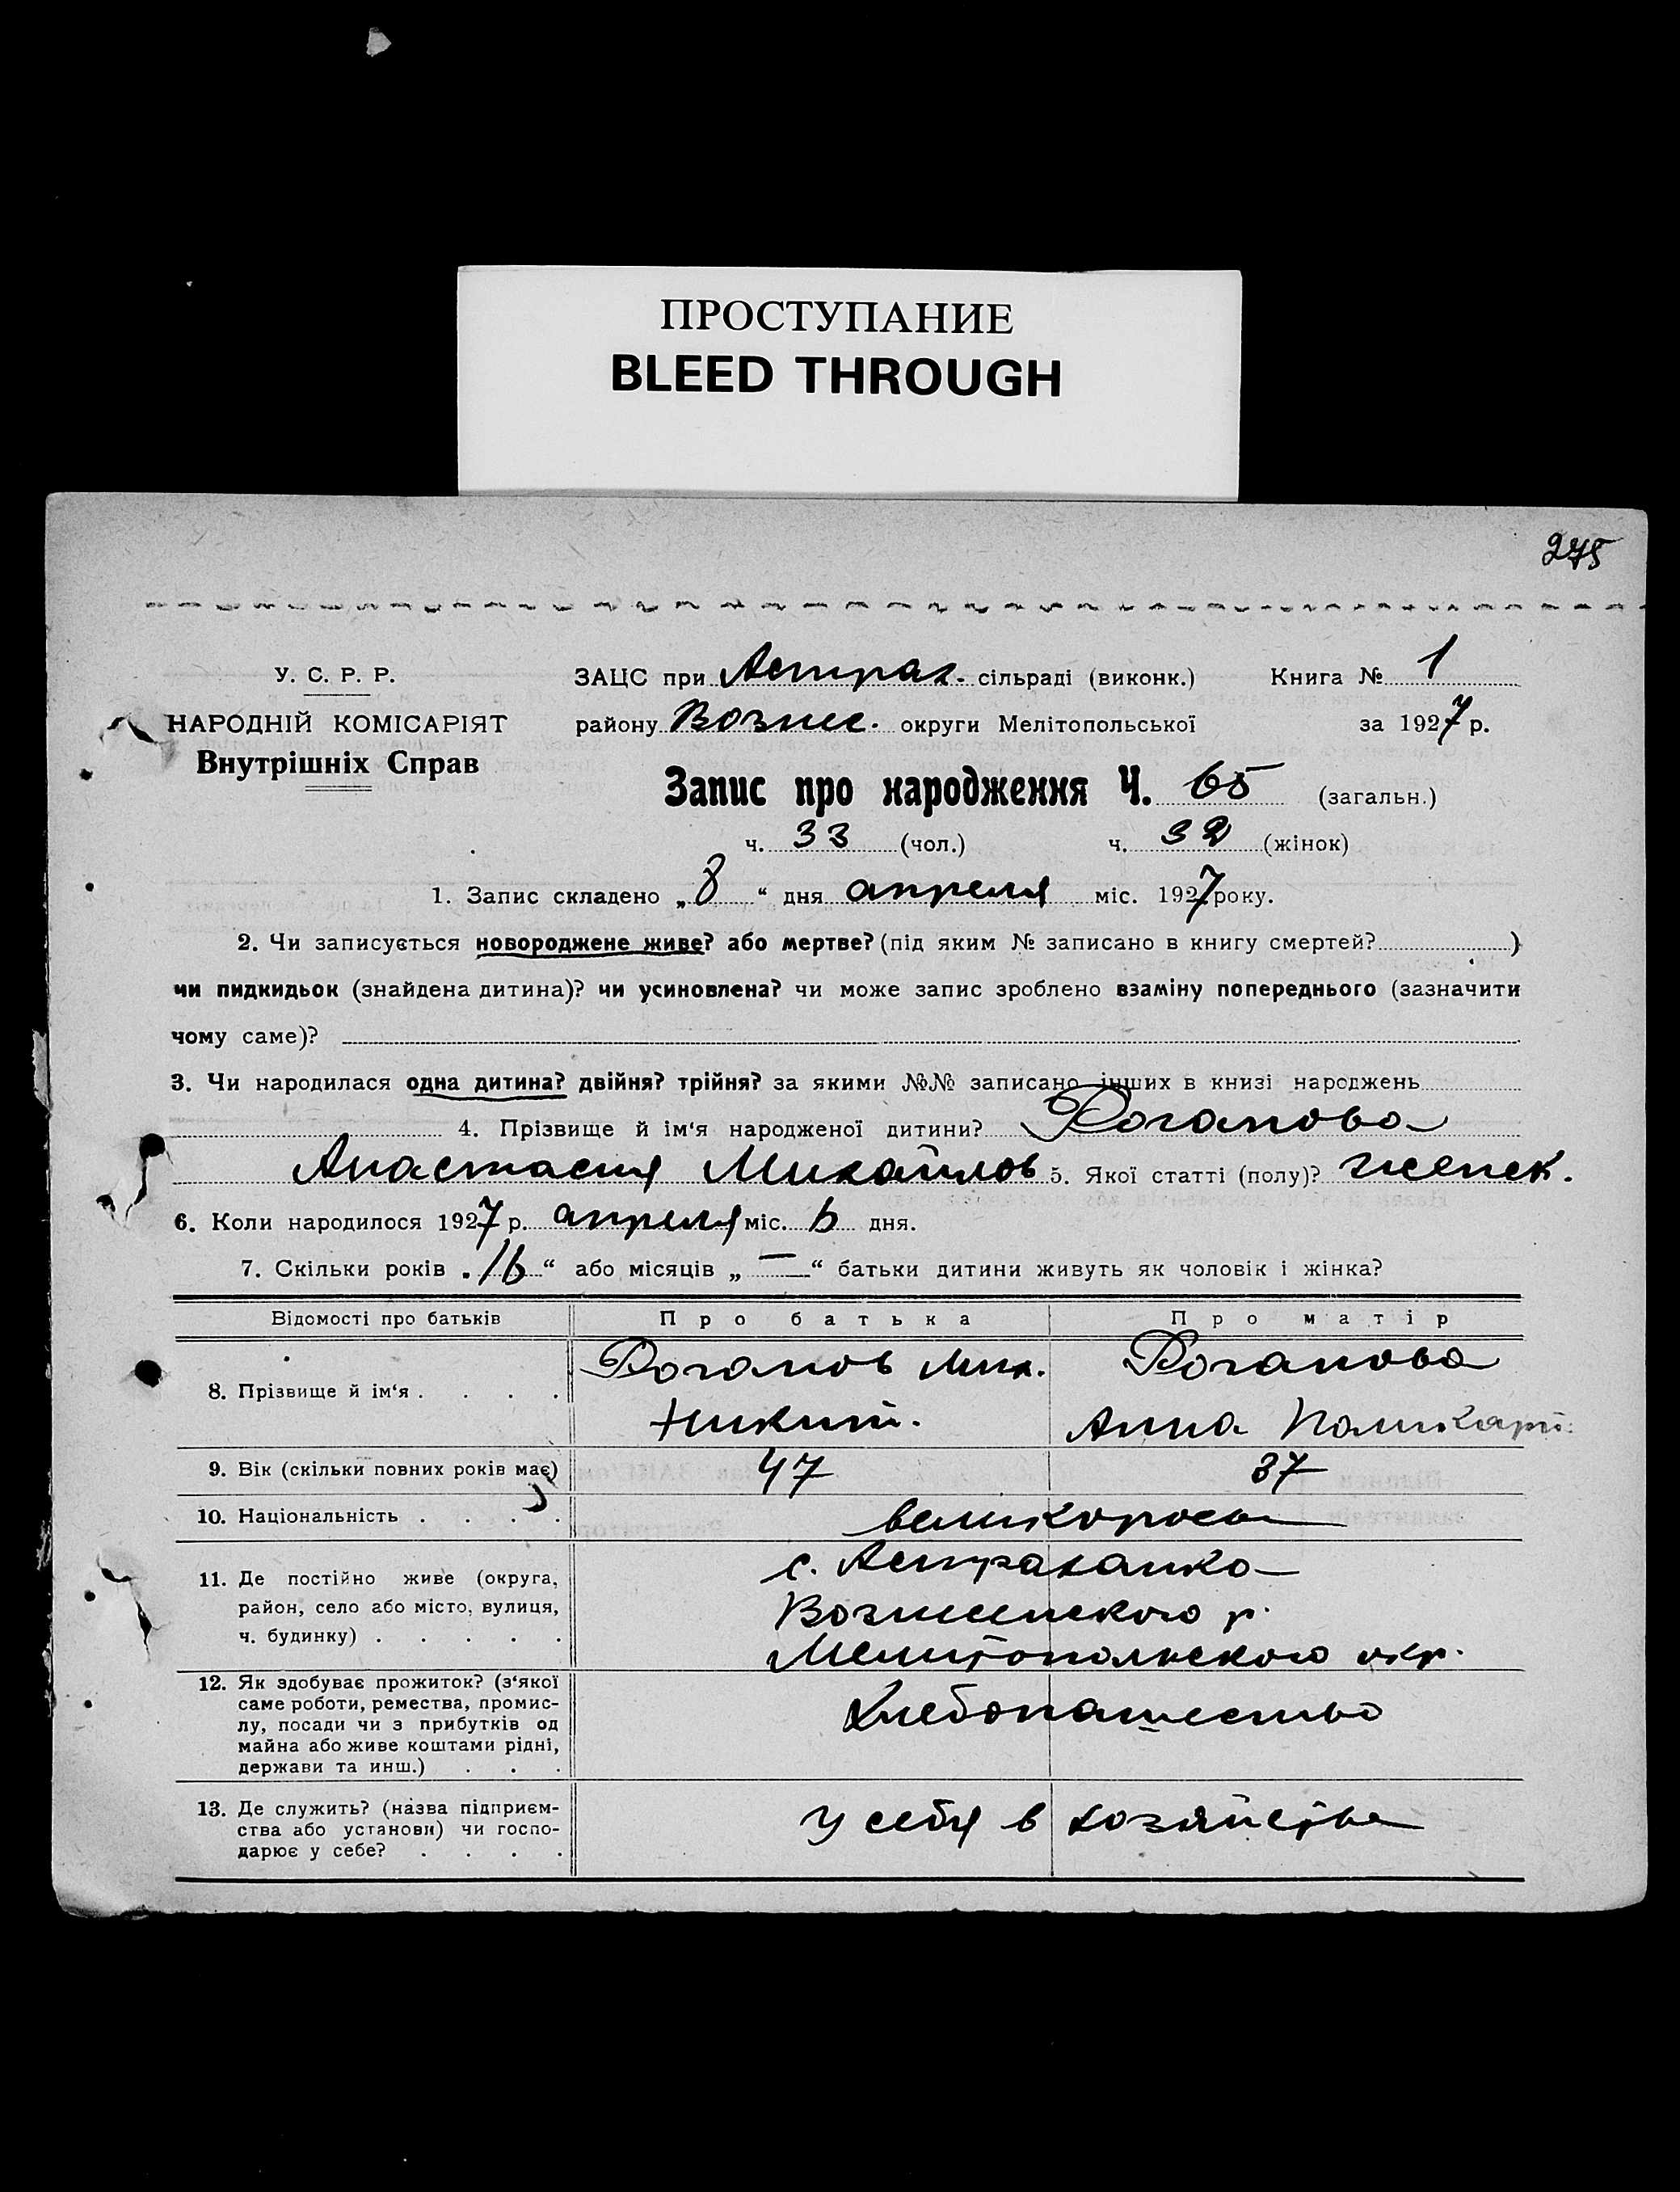 ПРОСТУПАНИЕ
BLEED THROUGH
275
У. С. Р. Р.
НАРОДНІЙ КОМІСАРІЯТ
Внутрішніх Справ
ЗАЦС при Астрах. сільраді (виконк.) Книга № 1
району Возне. округи Мелітопольської за 1927 р.
Запис про народження Ч. 65 (загальн.)
ч. 33 (чол.) ч. 32 (жінок)
1. Запис складено „8“ дня апреля міс. 1927 року.
2. Чи записується новороджене живе? або мертве? (під яким № записано в книгу смертей? )
чи пидкидьок (знайдена дитина)? чи усиновлена? чи може запис зроблено взаміну попереднього (зазначити
чому саме)?
3. Чи народилася одна дитина? двійня? трійня? за якими №№ записано інших в книзі народжень
4. Прізвище й ім‘я народженої дитини? Роганова
Анастасия Михайлов 5. Якої статті (полу)? женск.
6. Коли народилося 1927 р. апреля міс. 6 дня.
7. Скільки років „16“ або місяців „—“ батьки дитини живуть як чоловік і жінка?
Відомості про батьків Про батька Про матір
8. Прізвище й ім‘я . . . .
Роганов Мих.
Никит.
Роганова
Анна Поликарп.
9. Вік (скільки повних років має) 47 37
10. Національність . . . . великороссы
11. Де постійно живе (округа,
район, село або місто, вулиця,
ч. будинку) . . . . .
с. Астраханка
Вознесенского р.
Мелитопольского окр.
12. Як здобуває прожиток? (з‘якої
саме роботи, ремества, промис-
лу, посади чи з прибутків од
майна або живе коштами рідні,
держави та инш.) . . .
Хлебопашество
13. Де служить? (назва підприєм-
ства або установи) чи госпо-
дарює у себе? . . . .
У себя в хозяйстве